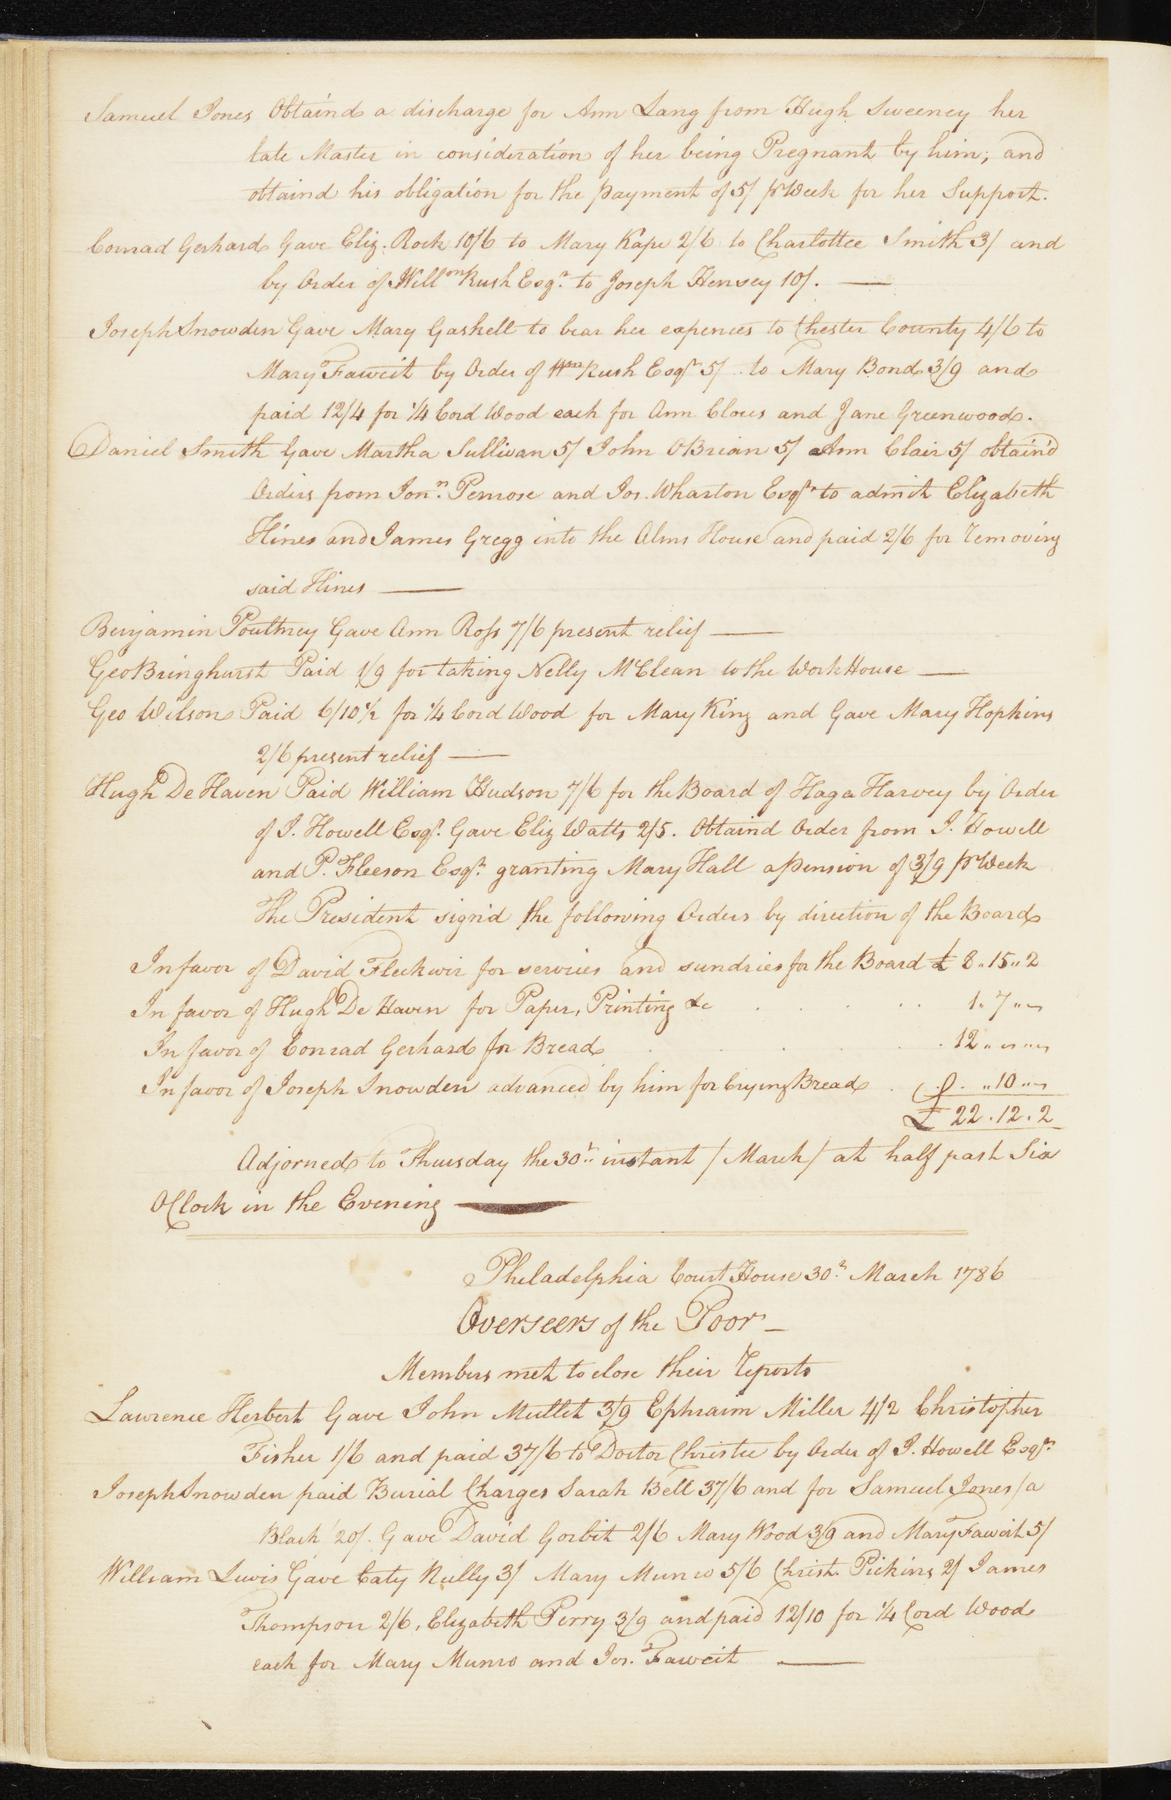 Samuel Jones Obtaind a discharge for Ann Lang from Hugh Sweeney her
late Master in consideration of her being Pregnant by him, and
obtaind his obligation for the payment of 5/ pr Week for her Support.
Conrad Gerhard Gave Eliz. Rock 10/6 to Mary Kape 2/6 to Charlottee Smith 3/ and
by Order of Willm Rush Esqr. to Joseph Hensey 10/. —
Joseph Snowden Gave Mary Gaskell to bear her expences to Chester County 4/6 to
Mary Fawcit by Order of Wm Rush Esqr 5/ to Mary Bond 3/9 and
paid 12/4 for 1/4 Cord Wood each for Ann Clows and Jane Greenwood.
Daniel Smith Gave Martha Sullivan 5/ John OBrian 5/ Ann Clair 5/ obtain'd
Orders from Jonn. Penrose and Jos. Wharton Esqrs to admit Elizabeth
Hines and James Gregg into the Alms House and paid 2/6 for removing
said Hines —
Benjamin Poultney Gave Ann Ross 7/6 present relief —
Geo Bringhurst Paid 1/9 for taking Nelly McClean to the Work House —
Geo Wilson Paid 6/10 1/2 for 1/4 Cord Wood for Mary King and Gave Mary Hopkins
2/6 present relief —
Hugh De Haven Paid William Hudson 7/6 for the Board of Haga Harvey by Order
of J. Howell Esqr. Gave Eliz Watts 2/5. Obtaind Order from J. Howell
and P. Fleeson Esqrs. granting Mary Hall a Pension of 3/9 pr Week
The President sign'd the following Orders by direction of the Board
In favor of David Fleckwir for services and sundries for the Board £ 8..15..2
In favor of Hugh De Haven for Paper, Printing &c . . . . 1..7..~
In favor of Conrad Gerhard for Bread . . . . 12..~..~
In favor of Joseph Snowden advanced by him for Crying Bread . . ..10..~
£ 22.12.2
Adjorned to Thursday the 30th.. instant / March / at half past Six
OClock in the Evening —
Philadelphia Court House 30th. March 1786
Overseers of the Poor —
Members met to close their reports
Lawrence Herbert Gave John Mullet 3/9 Ephraim Miller 4/2 Christopher
Fisher 1/6 and paid 37/6 to Doctor Christee by Order of J. Howell Esqr.
Joseph Snowden paid Burial Charges Sarah Bell 37/6 and for Samuel Jones /a
Black 20/. Gave David Gorbit 2/6 Mary Wood 3/9 and Mary Fawcit 5/
William Lewis Gave Caty Nully 3/ Mary Munro 5/6 Christ. Pickins 2/ James
Thompson 2/6, Elizabeth Perry 3/9 and paid 12/10 for 1/4 Cord Wood
each for Mary Munro and Jos. Fawcit —